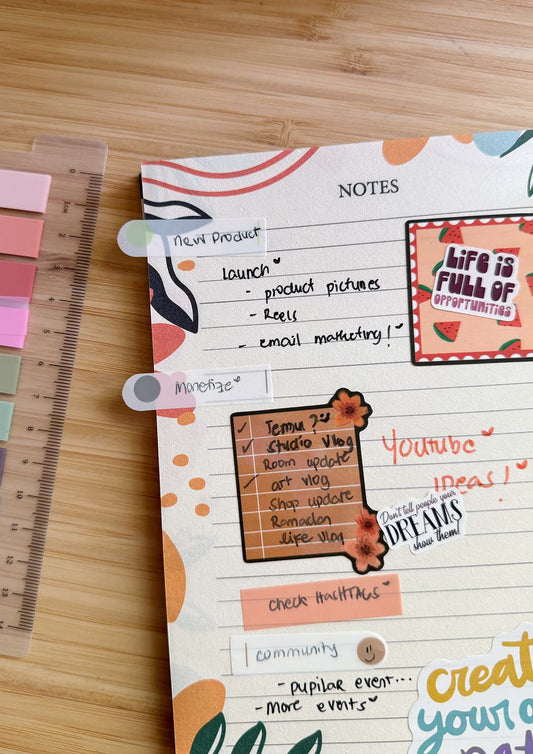 NOTES
New Product
Launch
- product pictures
- Reels
- email marketing!
LiFe iS
FULL OF
OPPORTUNITIES
Monetize
✓ Temu?
✓ Studio Vlog
Room update
✓ art vlog
Shop update
Ramadan
life vlog
YouTube
ideas!
Don't tell people your
DREAMS
show them!
Check HasHTAGs
community
- pupilar event...
- More events
creat
your o
0
1CM
2
3
4
5
6
7
8
9
10
11
12
13
14